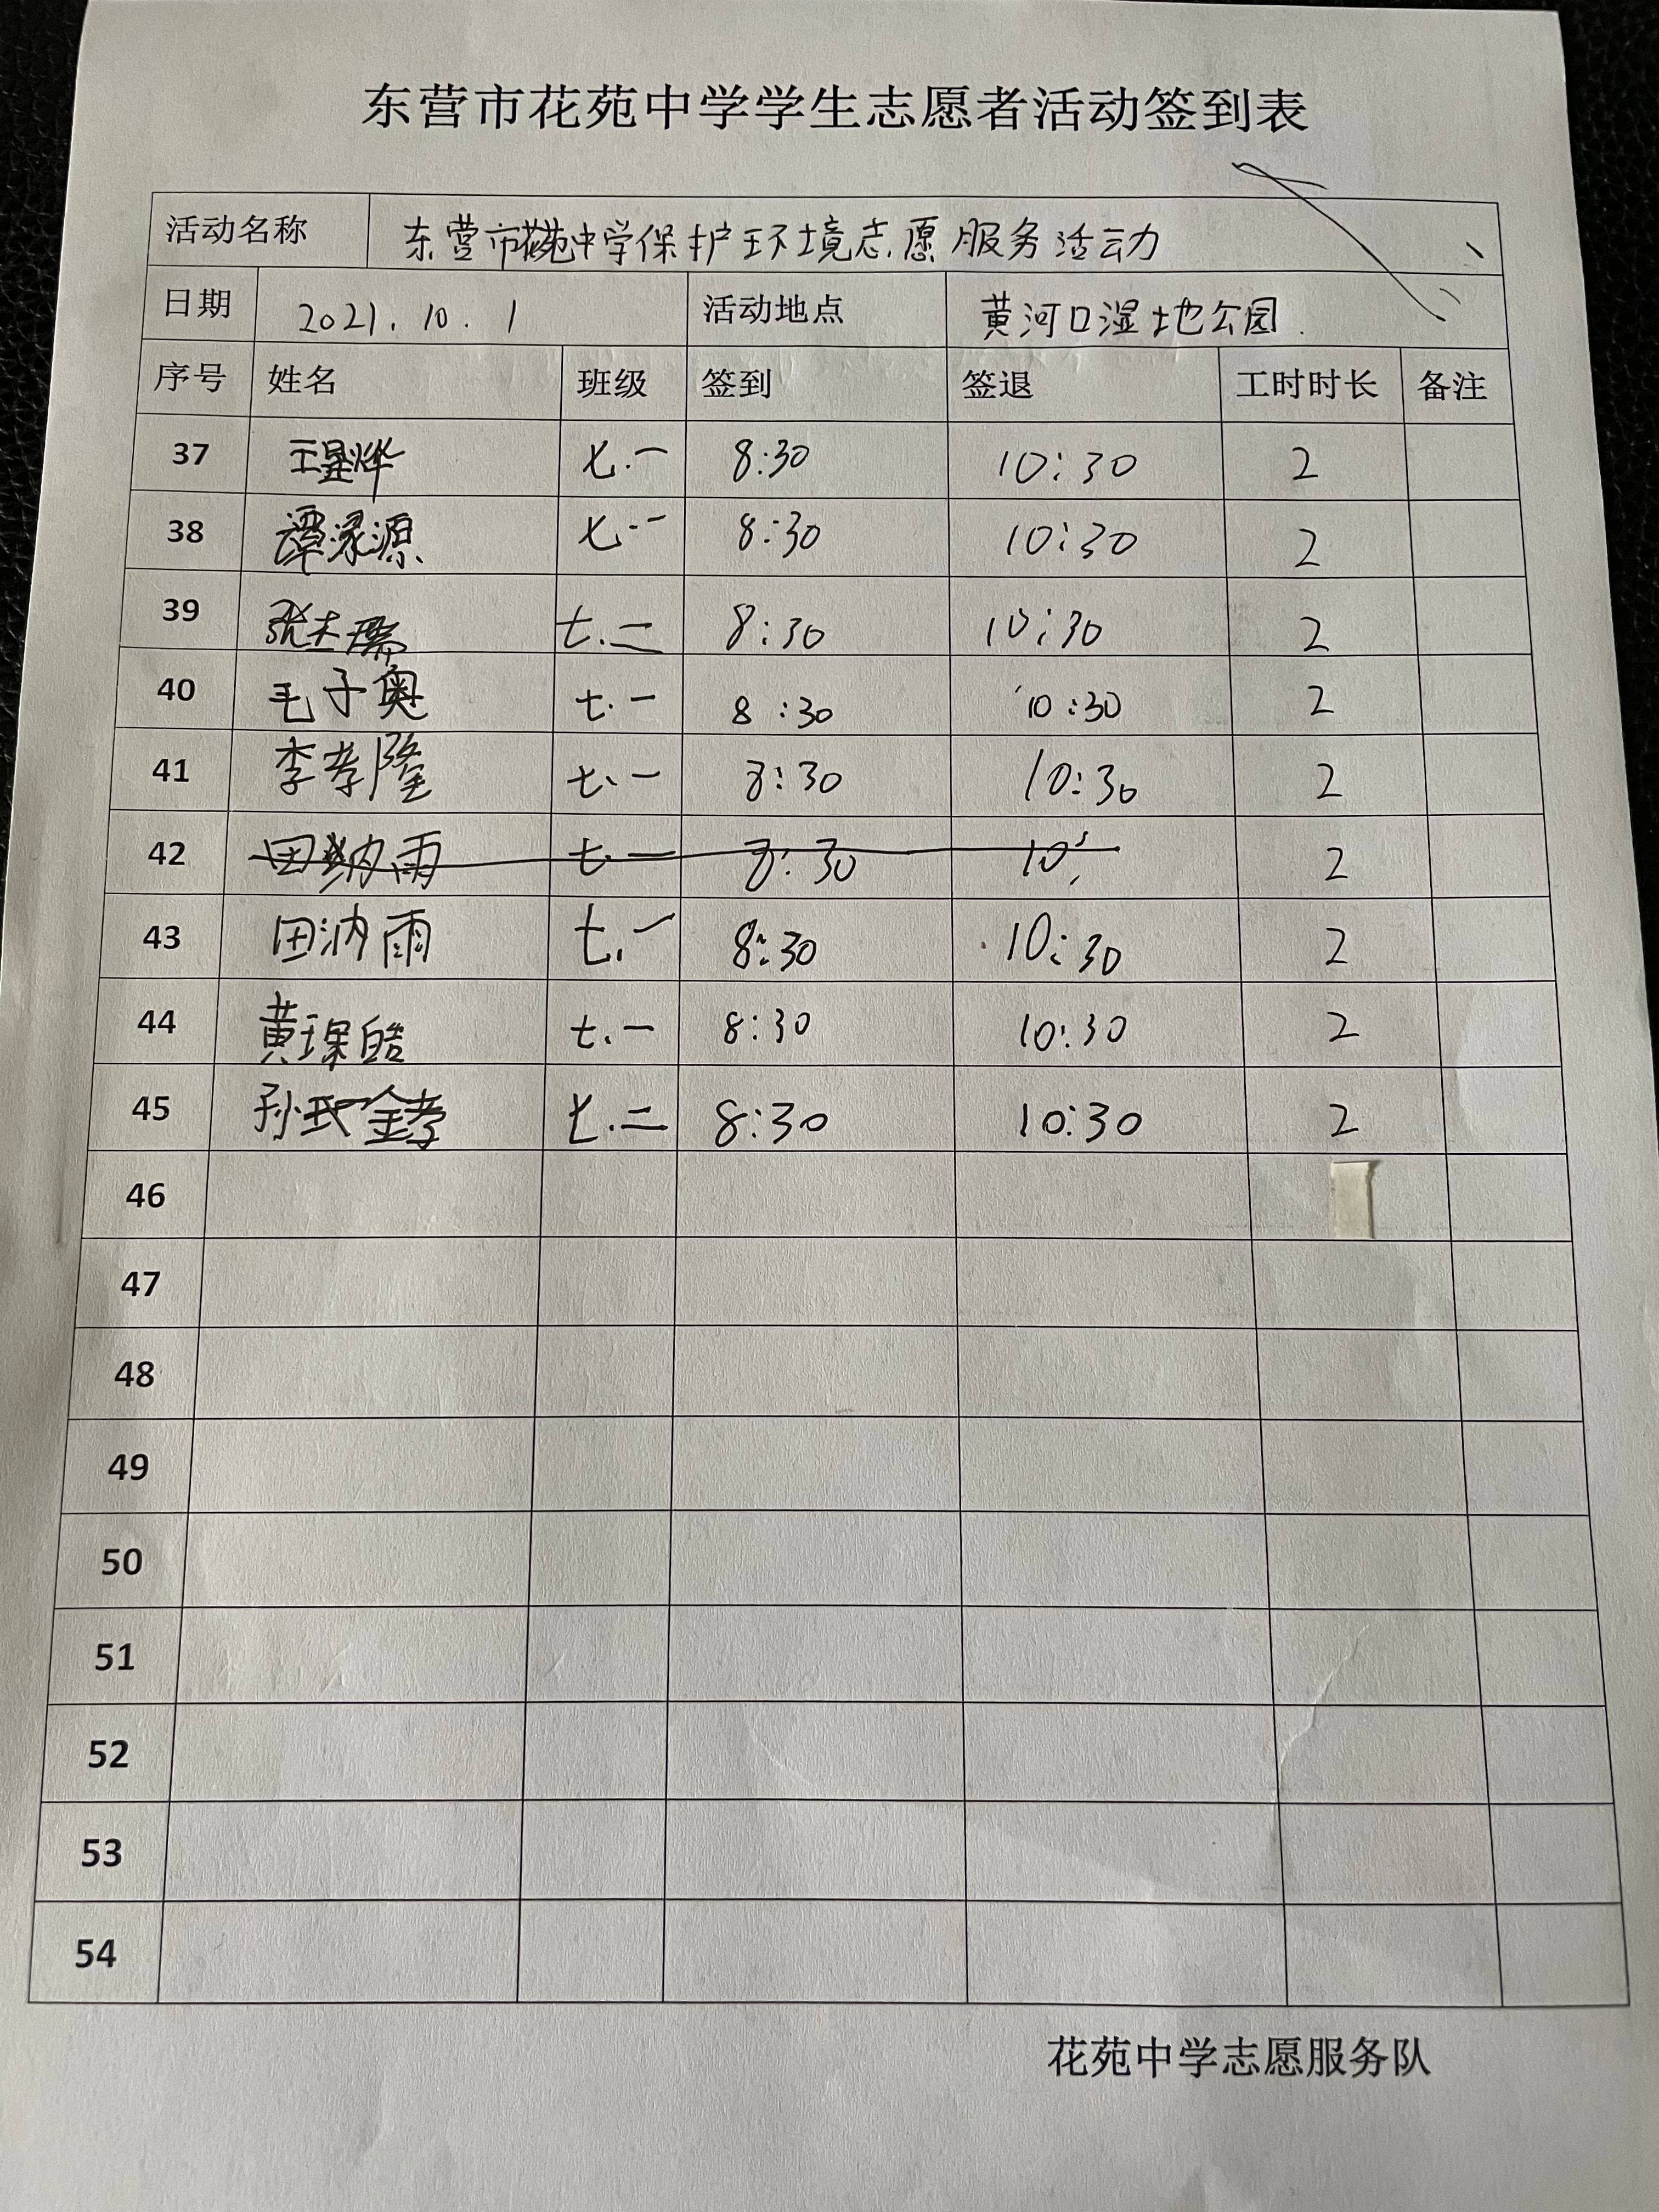 东营市花苑中学学生志愿者活动签到表
活动名称 东营市花苑中学保护环境志愿服务活动
日期 2021.10.1 活动地点 黄河口湿地公园
序号 姓名 班级 签到 签退 工时时长 备注
37 王星烨 七.一 8:30 10:30 2
38 谭渌源 七.一 8:30 10:30 2
39 张 七.二 8:30 10:30 2
40 毛子奥 七.一 8:30 10:30 2
41 李孝隆 七.一 8:30 10:30 2
42 田纳雨 七一 8:30 10: 2
43 田汭雨 七.一 8:30 10:30 2
44 黄琛皓 七.一 8:30 10:30 2
45 孙 七.二 8:30 10:30 2
46
47
48
49
50
51
52
53
54
花苑中学志愿服务队